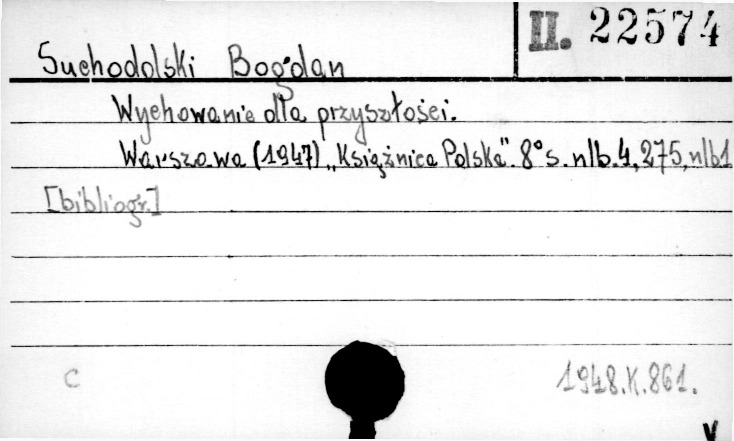 II. 22574
Suchodolski Bogdan
Wychowanie dla przyszłości.
Warszawa (1947) „Książnica Polska". 8° s. nlb. 4, 275, nlb 1
[bibliogr.]
C
1948.K.861.
V